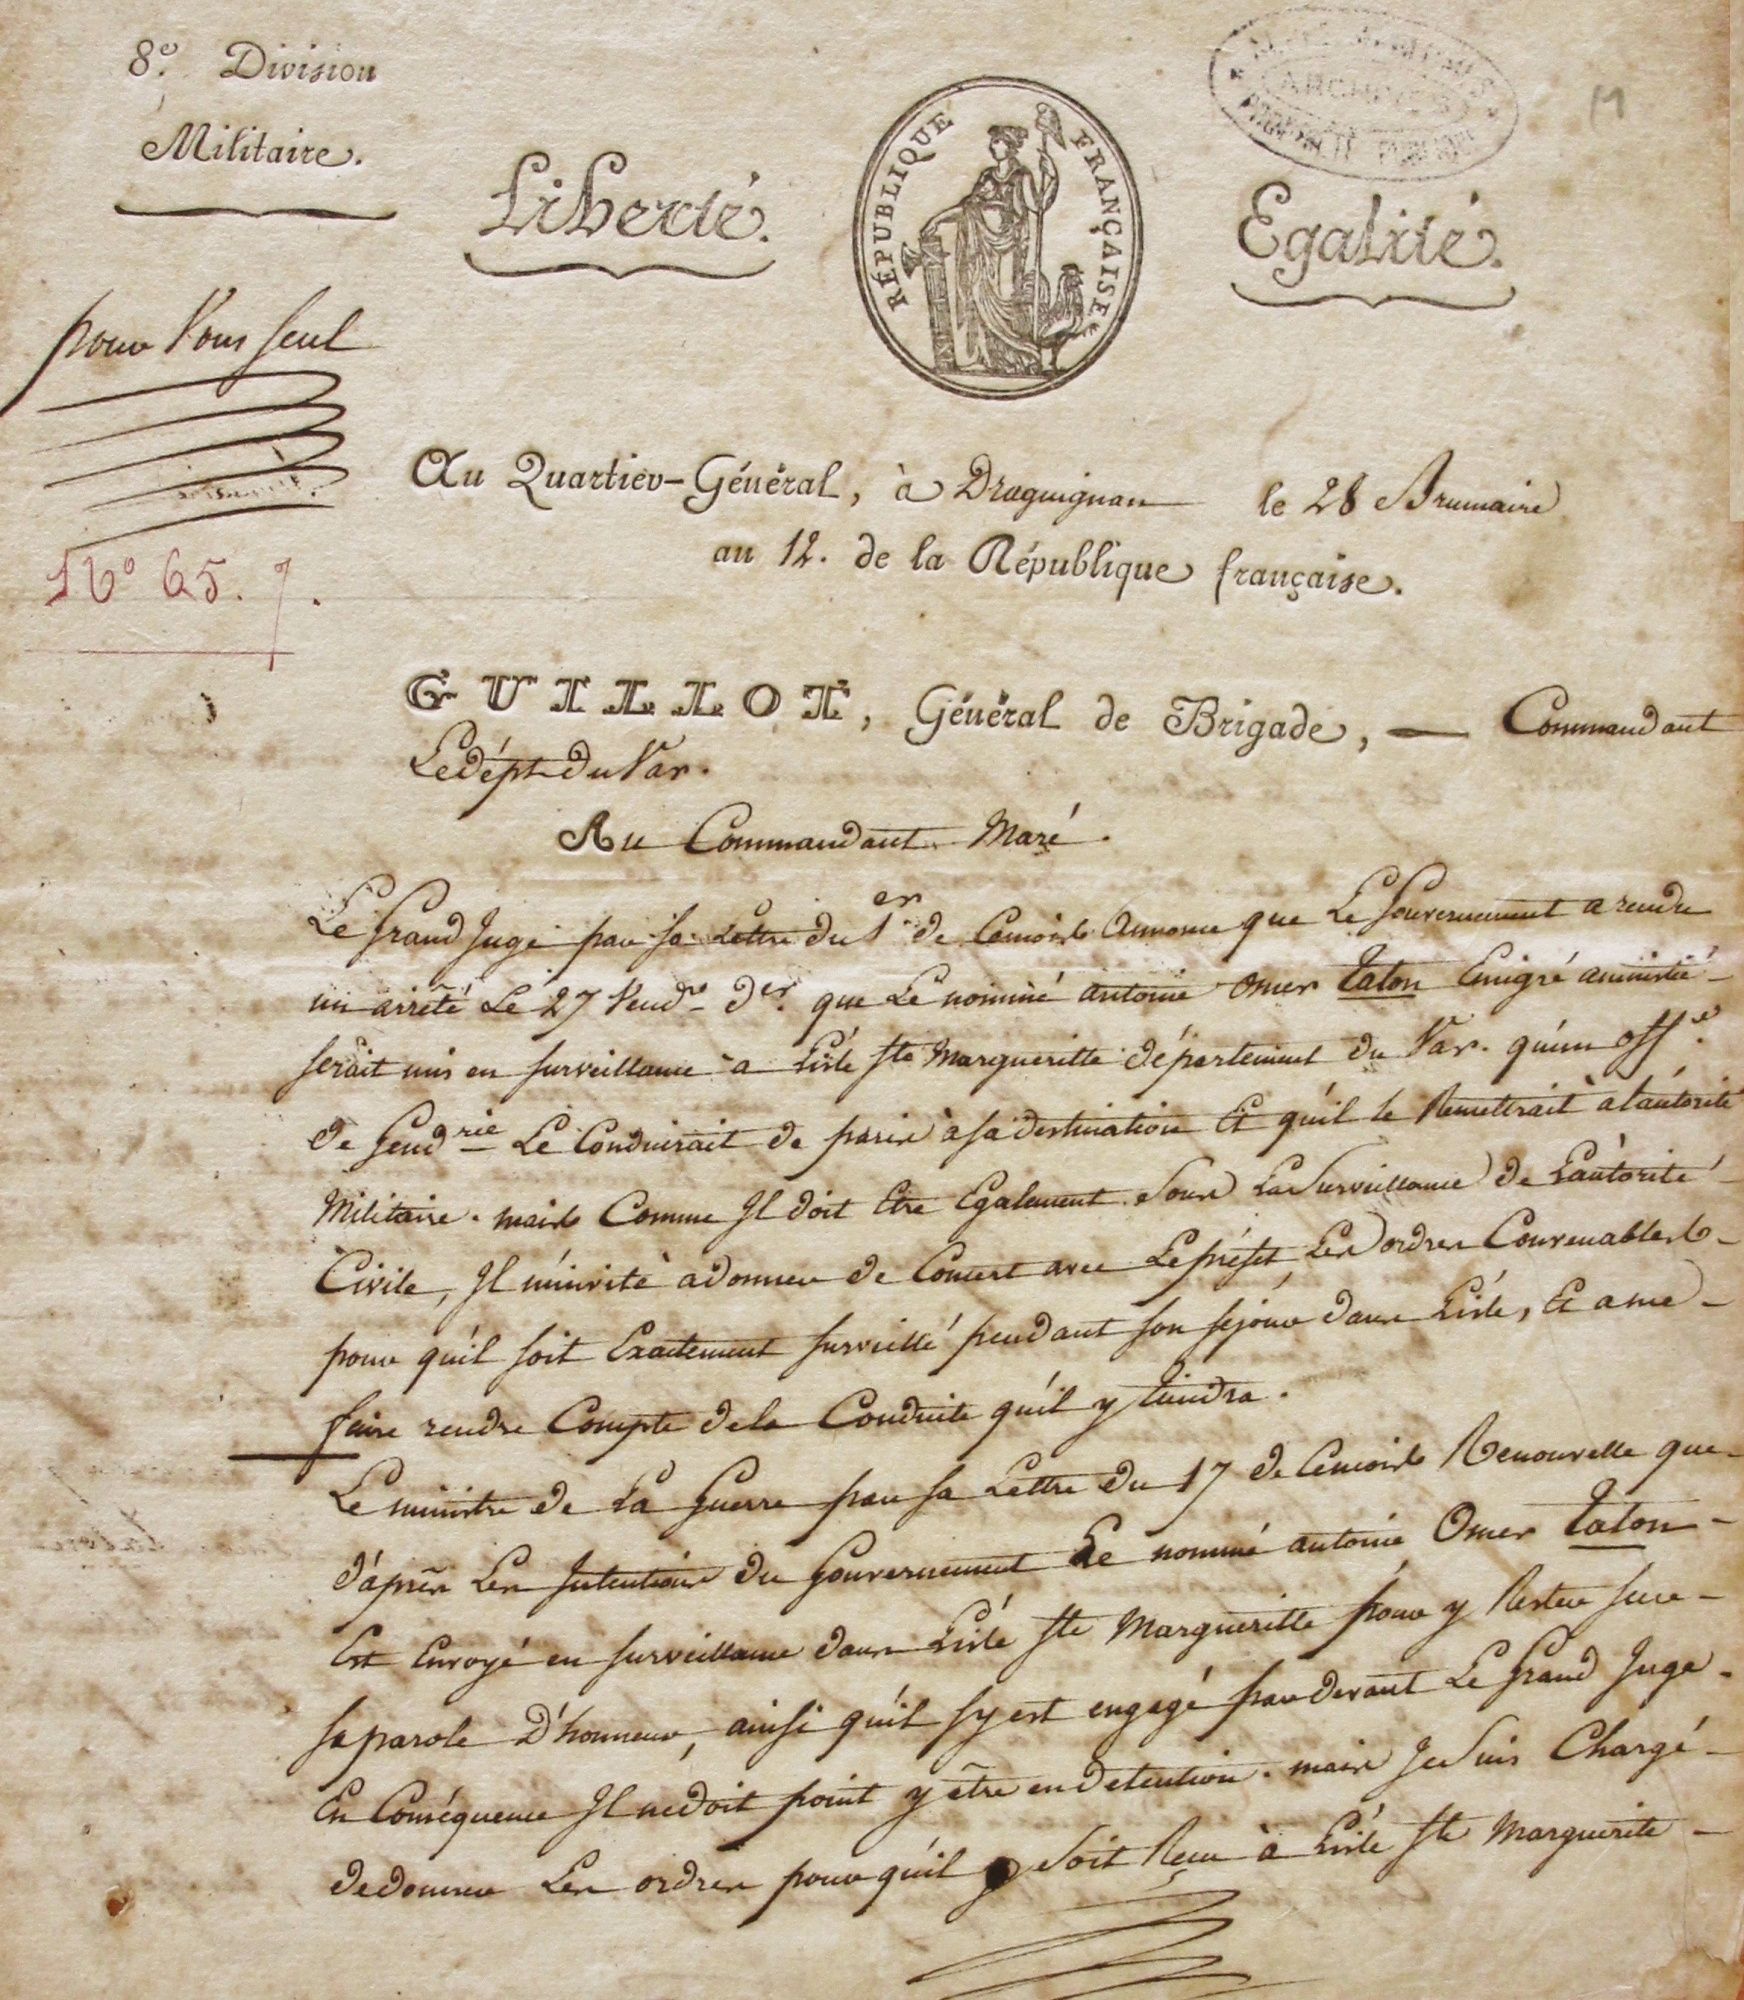 8.e Division
Militaire.
Liberté.
RÉPUBLIQUE FRANÇAISE
Egalité.
ALPES MARITIMES
ARCHIVES
PROPRIÉTÉ PUBLIQUE
pour Vous seul
N° 65. 7.
Au Quartier-Général, à Draguignan le 28 Brumaire
an 12. de la République française.
GUILLOT, Général de Brigade, — Commandant
Le dépt du Var.
Au Commandant Maré.
Le Grand Juge par sa Lettre du 1er de Cemois Annonce que Le Gouvernement a rendu
un arrêté Le 27 Vendre der. que Le nommé antoine Omer Talon Emigré amnistié
serait mis en surveillance a Lisle Ste Margueritte département du Var. qu'un offe.
de Gendrie Le Conduirait de paris à sa destination Et qu'il le Remettrait à l'autorité
Militaire. mais Comme Il doit Etre Egalement Sous La Surveillance de L'autorité
Civile, Il m'invite a donner de Concert avec Le préfet Les ordres Convenables
pour qu'il soit Exactement surveillé pendant son séjour dans Lisle, Et a me
faire rendre Compte de la Conduite qu'il y tiendra.
Le ministre de La Guerre par sa Lettre du 17 de Cemois Renouvelle que
d'après Les Intentions du Gouvernement Le nommé antoine Omer Talon
Est Envoyé en surveillance dans Lisle Ste Margueritte pour y Rester sur
sa parole D'honneur, ainsi qu'il s'y est engagé pardevant Le Grand Juge
En Conséquence Il ne doit point y être en détention. mais Je Suis Chargé
de donner Les ordres pour qu'il y Soit Reçu à Lisle Ste Marguerite